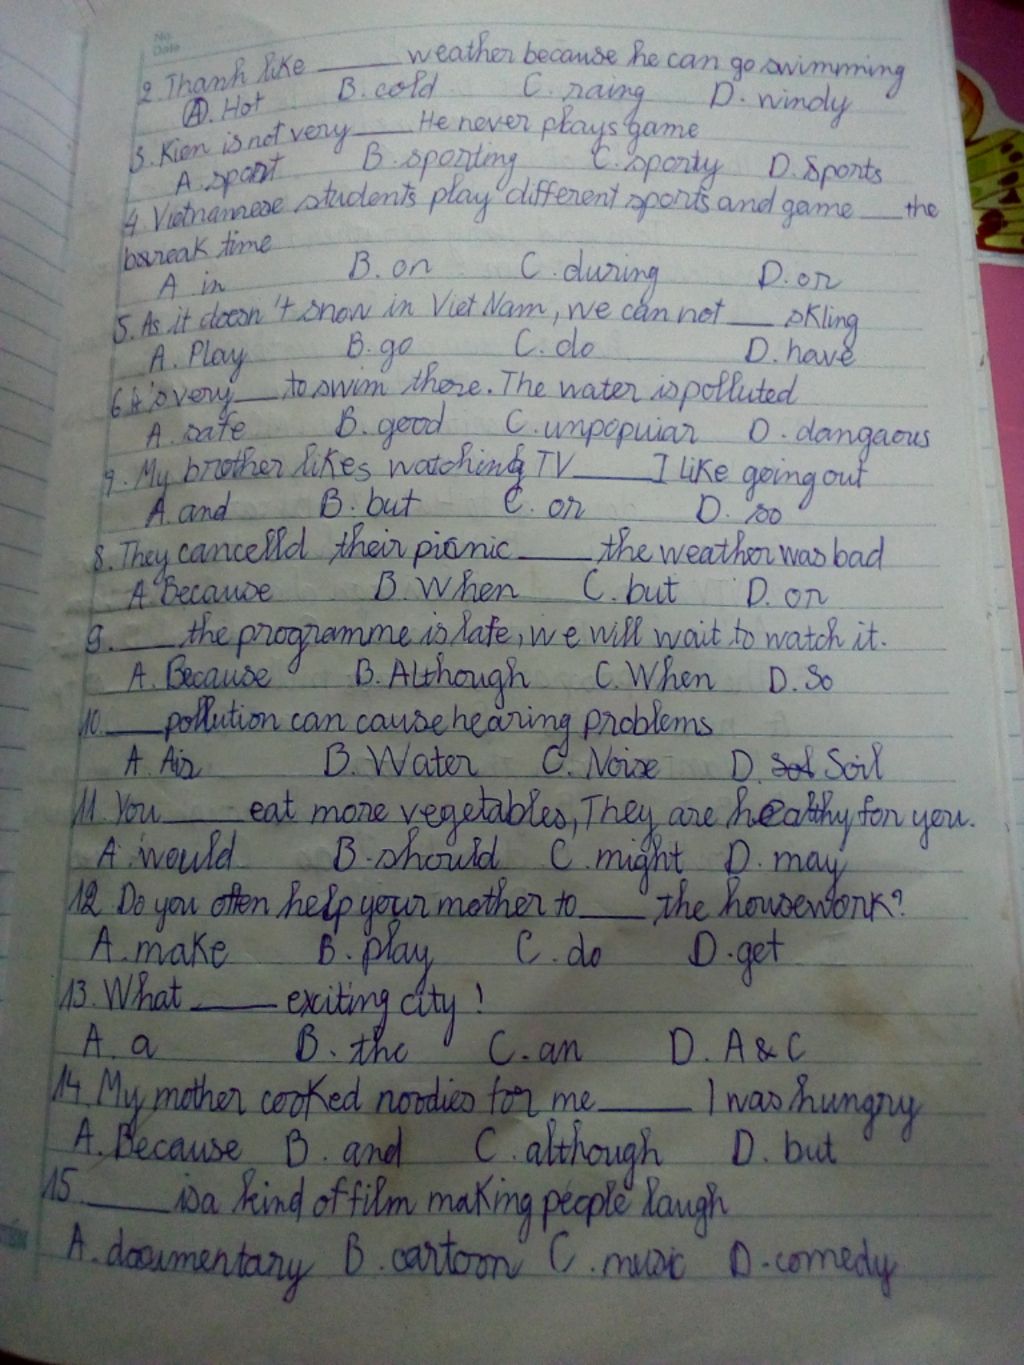 No.
Date
2. Thanh like ____ weather because he can go swimming
A. Hot B. cold C. raing D. windy
3. Kien is not very ____ He never plays game
A. sport B. sporting C. sporty D. Sports
4. Vietnamese students play different sports and game ___ the
break time
A in B. on C. during D. or
5. As it doesn't snow in Viet Nam, we can not ___ skling
A. Play B. go C. do D. have
6 It's very ___ to swim there. The water is polluted
A. safe B. good C. unpopuiar D. dangaous
7. My brother likes watching TV ____ I like going out
A. and B. but C. or D. so
8. They cancelld their picnic ____ the weather was bad
A Because B. When C. but D. or
9. ____ the programme is late, we will wait to watch it.
A. Because B. Although C. When D. So
10. ____ pollution can cause hearing problems
A. Air B. Water C. Noise D. Soil
11. You ____ eat more vegetables, They are healthy for you.
A. would B. should C. might D. may
12. Do you often help your mother to ____ the housework?
A. make B. play C. do D. get
13. What ____ exciting city!
A. a B. the C. an D. A & C
14. My mother cooked noodies for me ____ I was hungry
A. Because B. and C. although D. but
15. ____ is a kind of film making people laugh
A. documentary B. cartoon C. music D. comedy